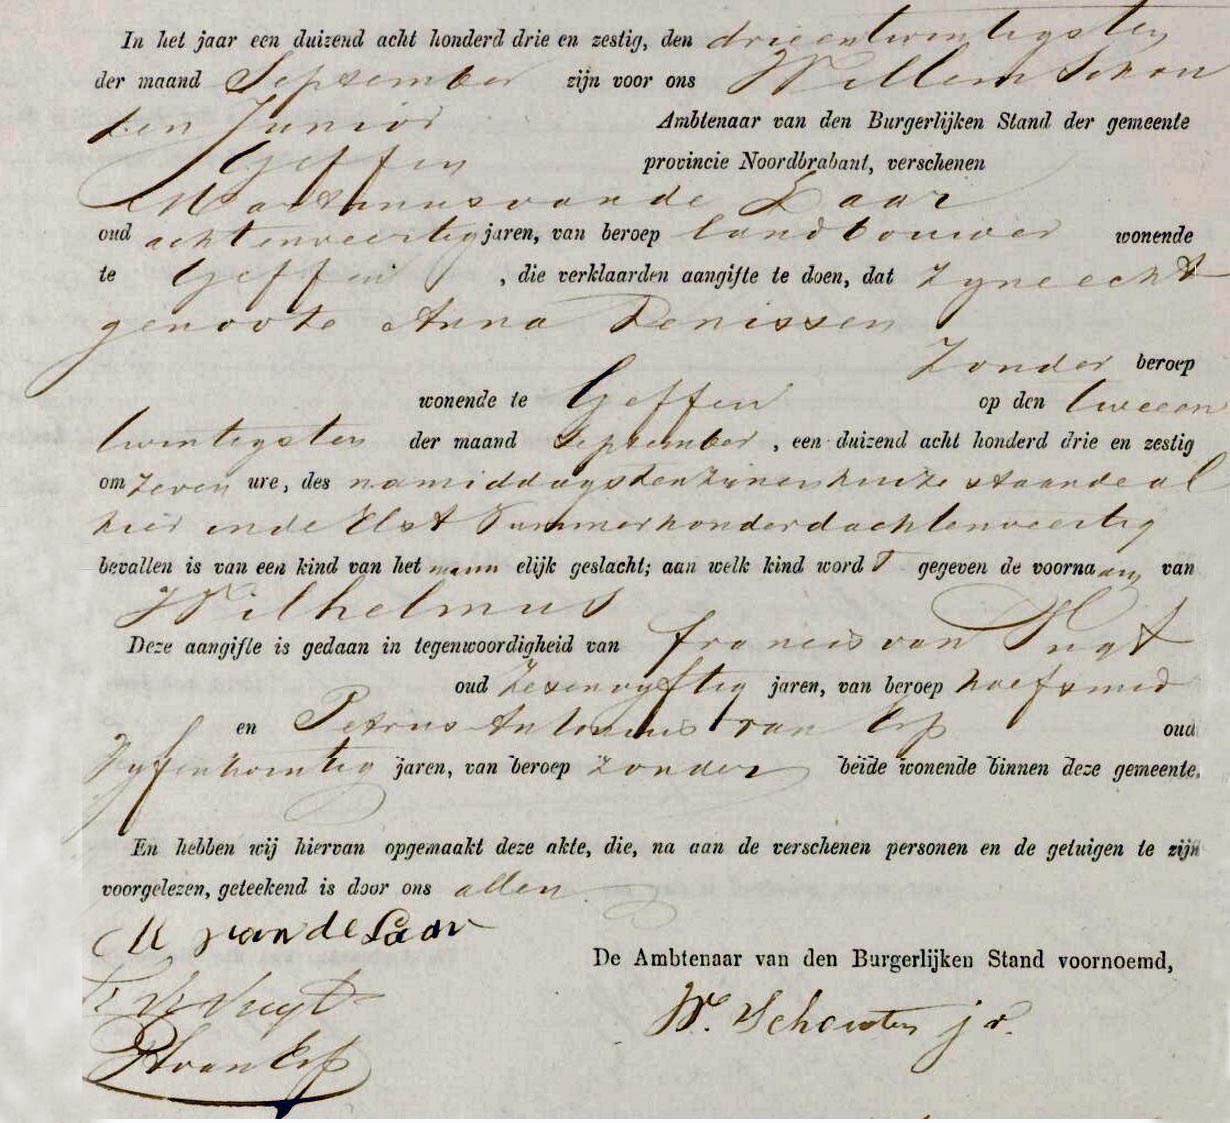 In het jaar een duizend acht honderd drie en zestig, den drieentwintigsten
der maand September zijn voor ons Willem Schou
ten Junior Ambtenaar van den Burgerlijken Stand der gemeente
Geffen provincie Noordbrabant, verschenen
Martinus van de Laar
oud achtenveertig jaren, van beroep landbouwer wonende
te Geffen , die verklaarden aangifte te doen, dat zyne echt
genoote Anna Denissen
Zonder beroep
wonende te Geffen op den tweeen
twintigsten der maand September , een duizend acht honderd drie en zestig
om zeven ure, des namiddags ten zijnen huize staande al
hier in de Elst Nummer honderdachtenveertig
bevallen is van een kind van het mann elijk geslacht; aan welk kind word T gegeven de voornaam van
Wilhelmus
Deze aangifte is gedaan in tegenwoordigheid van francis van Vugt
oud Zesenvyftig jaren, van beroep hoefsmid
en Petrus Antonius van Erp oud
Vyfentwintig jaren, van beroep zonder beide wonende binnen deze gemeente.
En hebben wij hiervan opgemaakt deze akte, die, na aan de verschenen personen en de getuigen te zijn
voorgelezen, geteekend is door ons allen
M van de Laar
De Ambtenaar van den Burgerlijken Stand voornoemd,
F V Vugt
W. Schouten jr.
PA van Erp